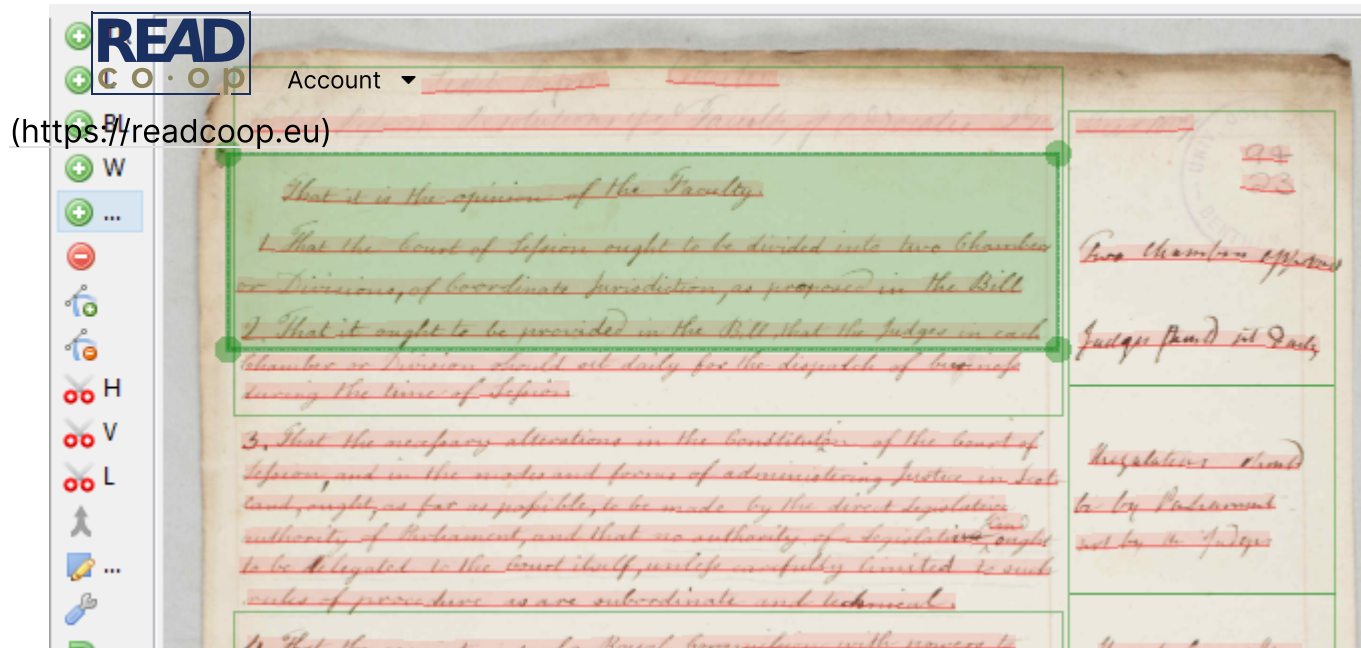 READ
co·op
Account
(https://readcoop.eu)
BL
W
...
H
V
L
...
That it is the opinion of the Faculty.
1. That the Court of Session ought to be divided into two Chambers
or Divisions, of Coordinate Jurisdiction, as proposed in the Bill
2. That it ought to be provided in the Bill, that the Judges in each
Chamber or Division should sit daily for the dispatch of business
during the time of Session
3. That the necessary alterations in the Constitution of the Court of
Session, and in the modes and forms of administering Justice in Scot-
land, ought, as far as possible, to be made by the direct Legislative
authority of Parliament, and that no authority of Legislation ought
to be delegated to the Court itself, unless carefully limited to such
rules of procedure as are subordinate and technical.
4. That the a Royal Commission with powers to
94
23
Two Chambers approved
Judges should sit Daily
Regulations should
be by Parliament
not by the Judges